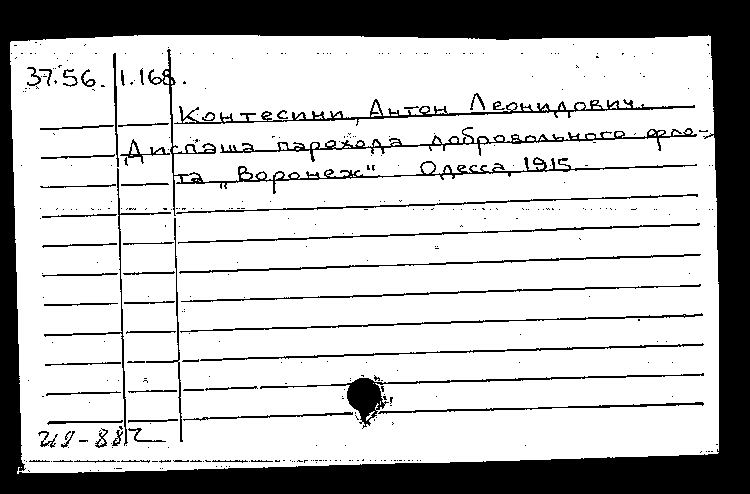 37.56. 1.168.
Контесини, Антон Леонидович.
Диспаша парохода добровольного фло-
та „Воронеж“. Одесса, 1915.